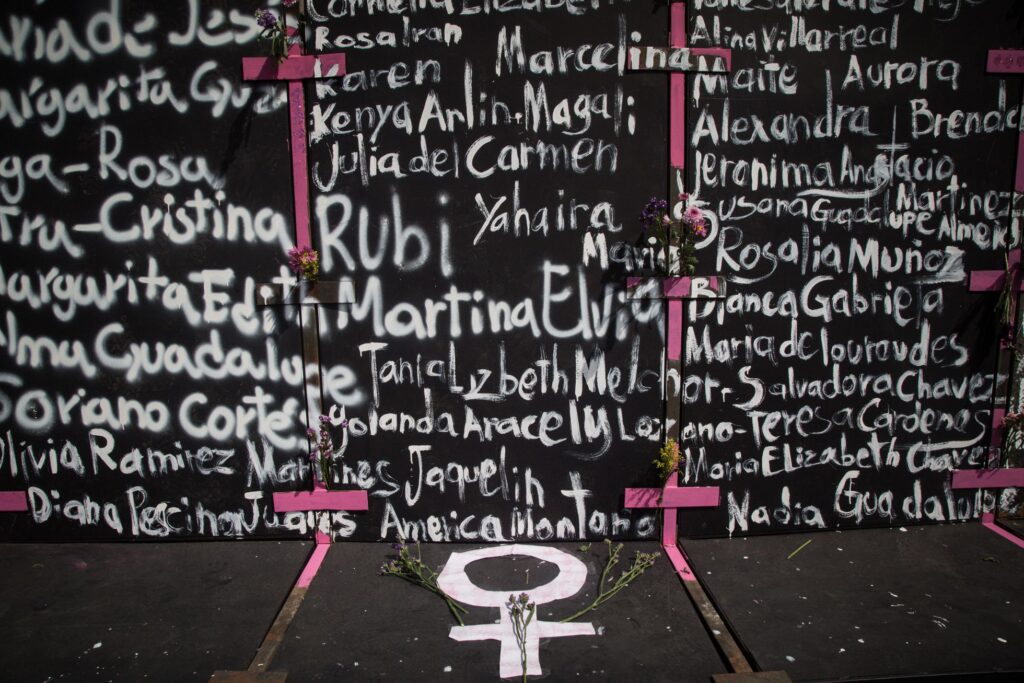 María de
Margarita
Rosa
Cristina
Margarita Edith
Alma Guadalupe
Soriano Cortés
Olivia Ramirez Martines
Diana Juares
Rosalran
Marcelina
Karen
Kenya Arlin-Magali
Julia del Carmen
Yahaira
Rubi
Maria
Martina Elvia
Tania Lizbeth Melchor-Salvadora Chavez
Yolanda Aracely Lozano-Teresa Cardenas
Jaquelin
America Montana
Alina Villarreal
Maite Aurora
Alexandra Brenda
Jeronima Anastacio
Susana Guadalupe Almeida
Martinez
Rosalia Muñoz
Bianca Gabriela
Maria de lourdes
Maria Elizabeth Chavez
Nadia Guadalupe